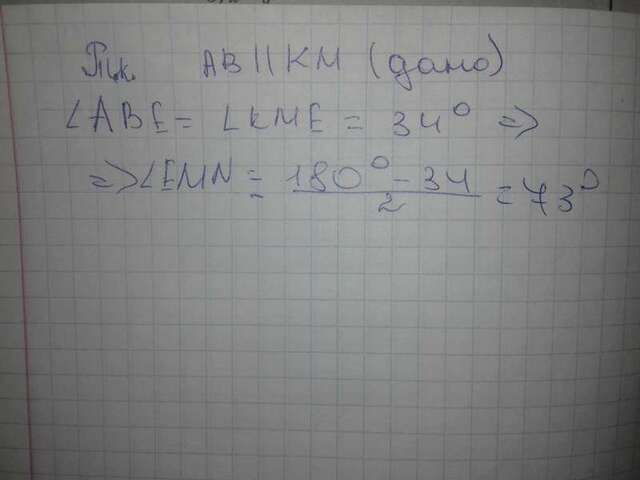 Т.к. AB || KM (дано)
∠ABE = ∠KME = 34° =>
=> ∠EMN = 180° - 34 / 2 = 73°